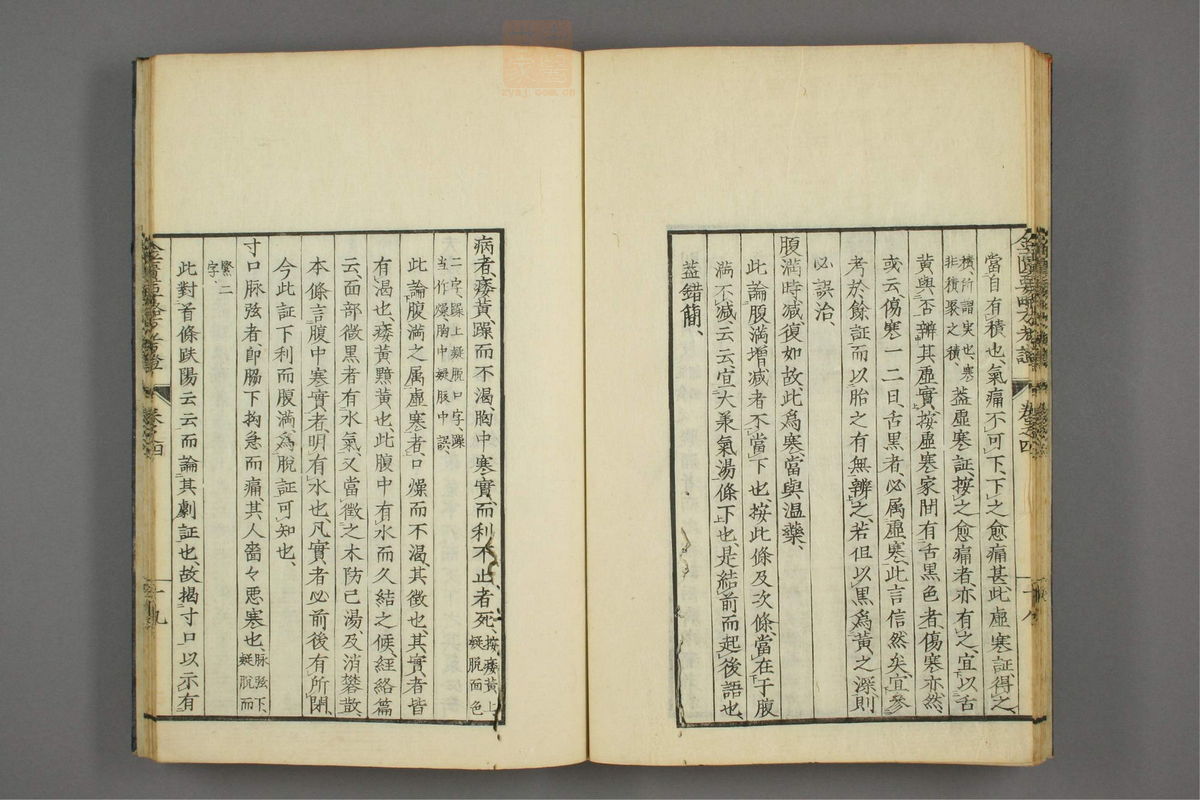 當自有積也、氣痛不可下、下之愈痛甚、此虛寒証得之、
積、所謂実也、寒
非積聚之積、
蓋虛寒証、按之愈痛者、亦有之、宜以舌
黄與否辨其虛實、按虛寒家間有舌黒色者、傷寒亦然、
或云、傷寒一二日舌黒者、必属虛寒、此言信然矣、宜參
考於餘証而以胎之有無辨之、若但以黒爲黄之深則
必誤治、
腹満時減復如故、此爲寒、當與温藥、
此論腹満增減者不當下也、按此條及次條、當在于腹
満不減、云云、宜大承氣湯條下也、是結前而起後語也、
蓋錯簡、
卷之四
十八
病者、痿黄、躁而不渴、胸中寒實、而利不止者死、
按、痿黄上
疑脱面色
二字、躁上疑脱口字、躁
当作燥、胸中疑腹中誤、
此論腹満之属虛寒者、口燥而不渴、其徴也、其實者皆
有渴也、痿黄黯黄也、此腹中有水而久結之候、經絡篇
云、面部微黒者有水氣、又當徴之木防已湯、及消礬散、
本條言腹中寒實者、明有水也、凡實者必前後有所閉、
今此証下利而腹満、為脱証可知也、
寸口脉弦者、卽脇下拘急而痛、其人嗇々悪寒也、
脉弦下、
疑脱而
緊二
字、
此對首條趺陽云云而論其劇証也、故掲寸口以示有
卷之四
十九
zysj.com.cn